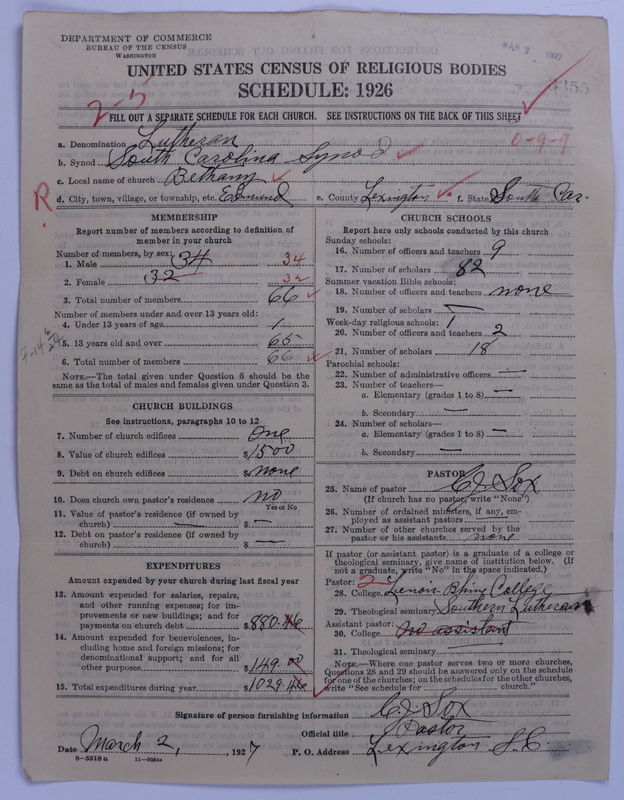 DEPARTMENT OF COMMERCE
BUREAU OF THE CENSUS
WASHINGTON
MAR 3 1927
UNITED STATES CENSUS OF RELIGIOUS BODIES
SCHEDULE: 1926
2-5
FILL OUT A SEPARATE SCHEDULE FOR EACH CHURCH. SEE INSTRUCTIONS ON THE BACK OF THIS SHEET
0-9-9
a. Denomination Lutheran
b. Synod South Carolina Synod
c. Local name of church Bethany
R. d. City, town, village, or township, etc. Edmund e. County Lexington f. State South Car.
MEMBERSHIP
Report number of members according to definition of
member in your church
Number of members, by sex:
1. Male 34 34
2. Female 32 32
3. Total number of members 66
Number of members under and over 13 years old:
4. Under 13 years of age 1
5. 13 years old and over 65
6. Total number of members 66
NOTE.—The total given under Question 6 should be the
same as the total of males and females given under Question 3.
CHURCH BUILDINGS
See instructions, paragraphs 10 to 12
7. Number of church edifices One
8. Value of church edifices $1500
9. Debt on church edifices $none
10. Does church own pastor's residence no
Yes or No
11. Value of pastor's residence (if owned by
church) — $ —
12. Debt on pastor's residence (if owned by
church) $ —
EXPENDITURES
Amount expended by your church during last fiscal year
13. Amount expended for salaries, repairs,
and other running expenses; for im-
provements or new buildings; and for
payments on church debt $880.46
14. Amount expended for benevolences, in-
cluding home and foreign missions; for
denominational support; and for all
other purposes $149.00
15. Total expenditures during year $1029.46
CHURCH SCHOOLS
Report here only schools conducted by this church
Sunday schools:
16. Number of officers and teachers 9
17. Number of scholars 82
Summer vacation Bible schools:
18. Number of officers and teachers none
19. Number of scholars —
Week-day religious schools: 1
20. Number of officers and teachers 2
21. Number of scholars 18
Parochial schools:
22. Number of administrative officers —
23. Number of teachers—
a. Elementary (grades 1 to 8) —
b. Secondary —
24. Number of scholars—
a. Elementary (grades 1 to 8) —
b. Secondary —
PASTOR
25. Name of pastor C J Sox
(If church has no pastor, write "None")
26. Number of ordained ministers, if any, em-
ployed as assistant pastors
27. Number of other churches served by the
pastor or his assistants none
If pastor (or assistant pastor) is a graduate of a college or
theological seminary, give name of institution below. (If
not a graduate, write "No" in the space indicated.)
Pastor: 2
28. College Lenoir Rhine College
29. Theological seminary Southern Lutheran
Assistant pastor:
30. College no assistant
31. Theological seminary
NOTE.—Where one pastor serves two or more churches,
Questions 28 and 29 should be answered only on the schedule
for one of the churches; on the schedules for the other churches,
write "See schedule for church."
Signature of person furnishing information C J Sox
Official title Pastor
Date March 2, 1927 P. O. Address Lexington S.C.
8—5518a